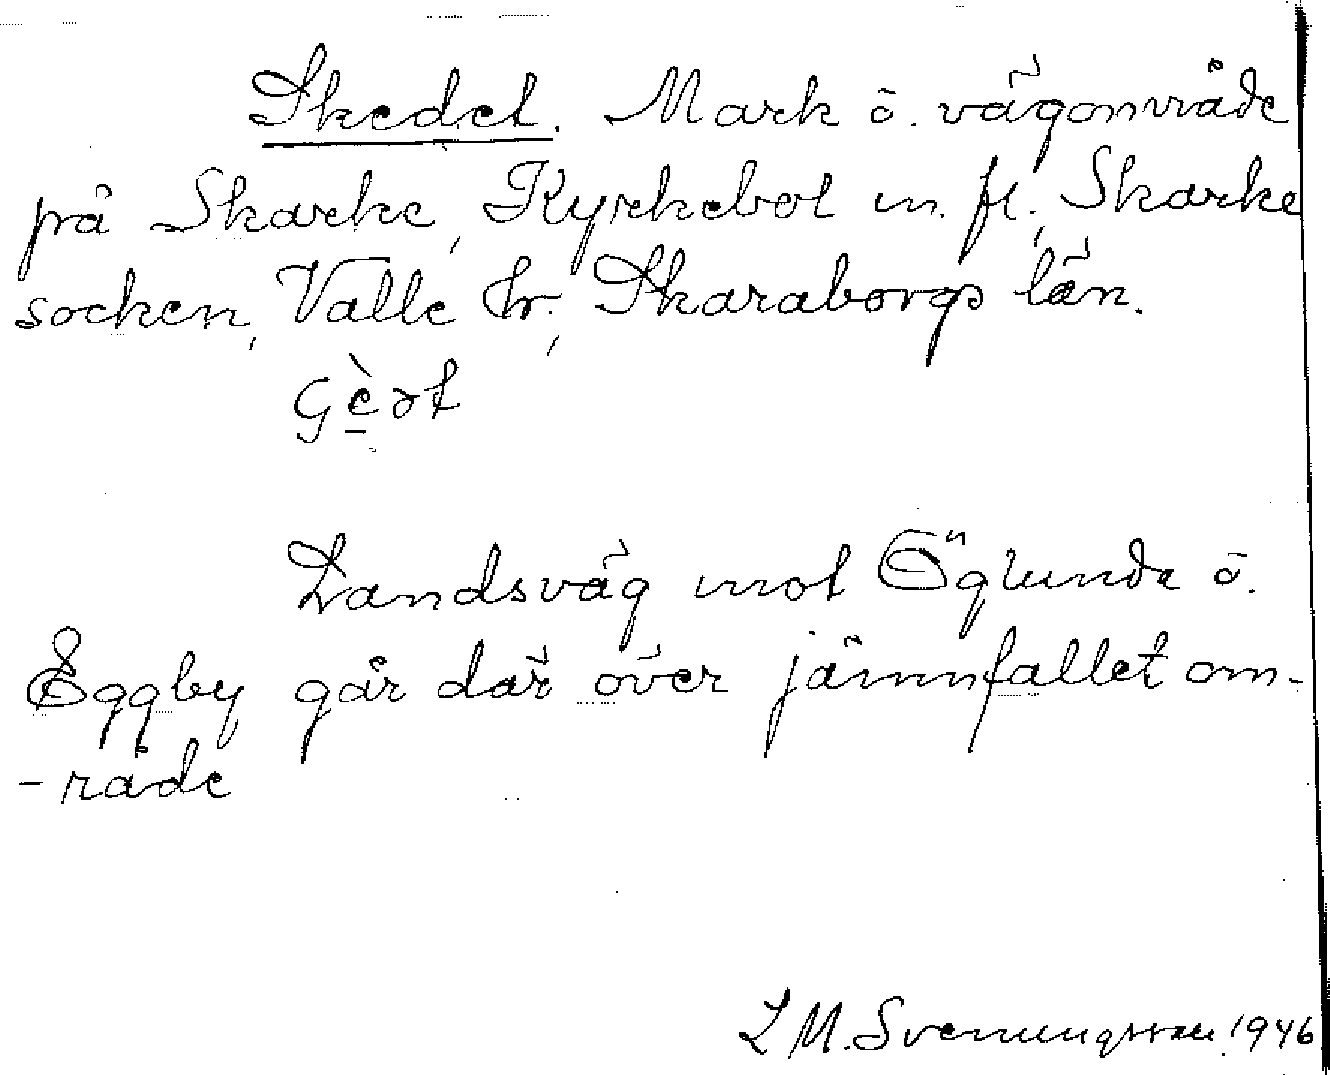 Skedet. Mark ö. vägområde
på Skarke, Kyrkebol m. fl., Skarke
socken, Valle hr., Skaraborgs län.
Landsväg mot Öglunda ö.
Eggby går där över jämnfallet om-
-råde
L M. Svenungsson 1946